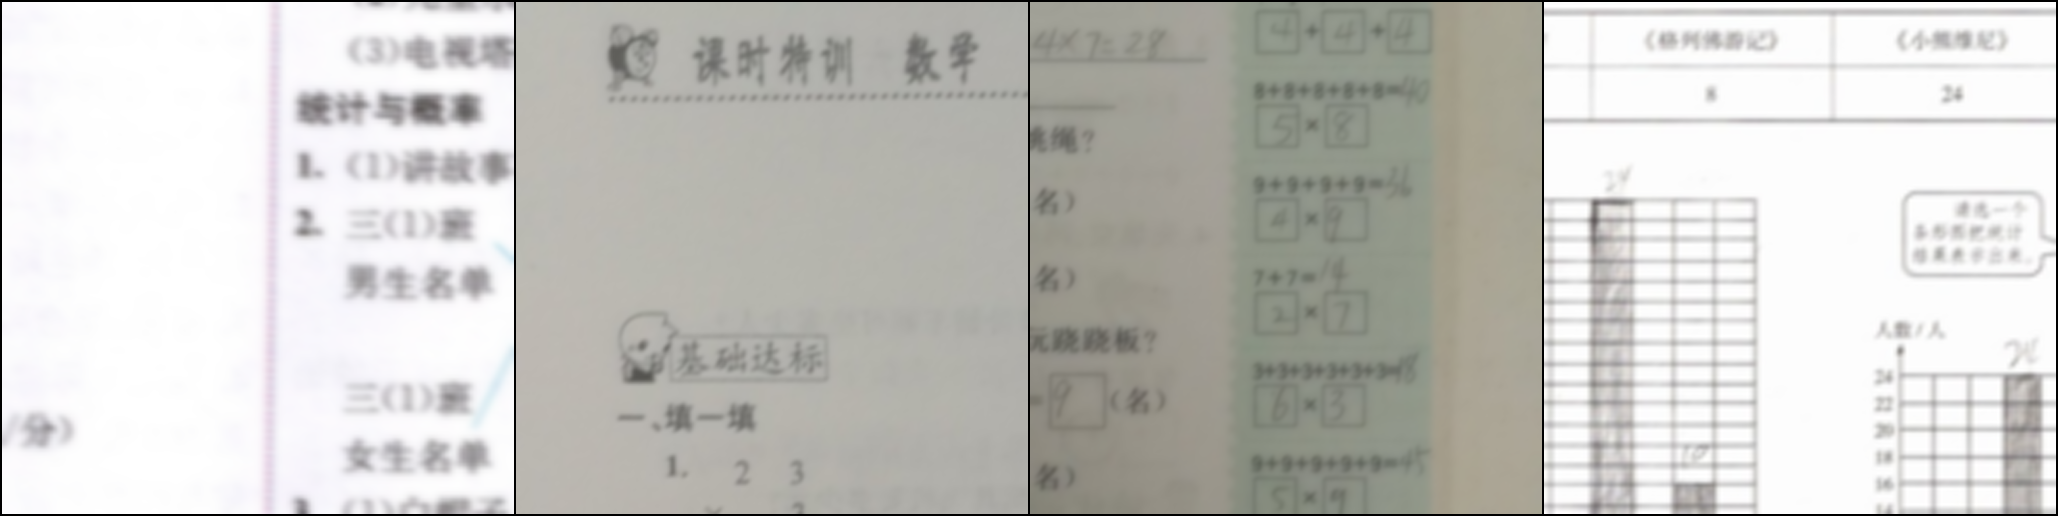 (3)电视塔
统计与概率
1. (1)讲故事
2. 三(1)班
男生名单
三(1)班
女生名单
/分)
课时特训 数学
基础达标
一、填一填
1. 2 3
4×7=28
跳绳?
名)
名)
玩跷跷板?
=9(名)
名)
4+4+4
8+8+8+8+8=40
5×8
9+9+9+9=36
4×9
7+7=14
2×7
3+3+3+3+3+3=18
6×3
9+9+9+9+9=45
5×9
《格列佛游记》 《小熊维尼》
8 24
24
10
请选一个
条形图把统计
结果表示出来。
人数/人
24
24
22
20
18
16
14